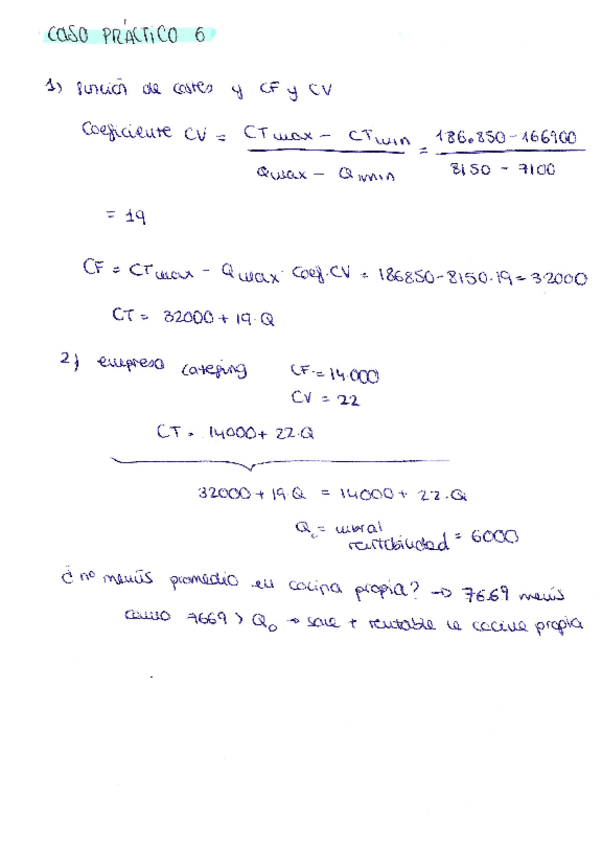 CASO PRÁCTICO 6
1) Función de costes y CF y CV
Coeficiente CV = CTmax - CTmin / Qmax - Qmin = 186.850 - 166900 / 8150 - 7100
= 19
CF = CTmax - Qmax · Coef. CV = 186850 - 8150 · 19 = 32000
CT = 32000 + 19 · Q
2) empresa catering CF = 14.000
CV = 22
CT = 14000 + 22 · Q
32000 + 19 · Q = 14000 + 22 · Q
Qo = umbral rentabilidad = 6000
¿nº menús promedio en cocina propia? → 7669 menús
como 7669 > Qo → sale + rentable la cocina propia